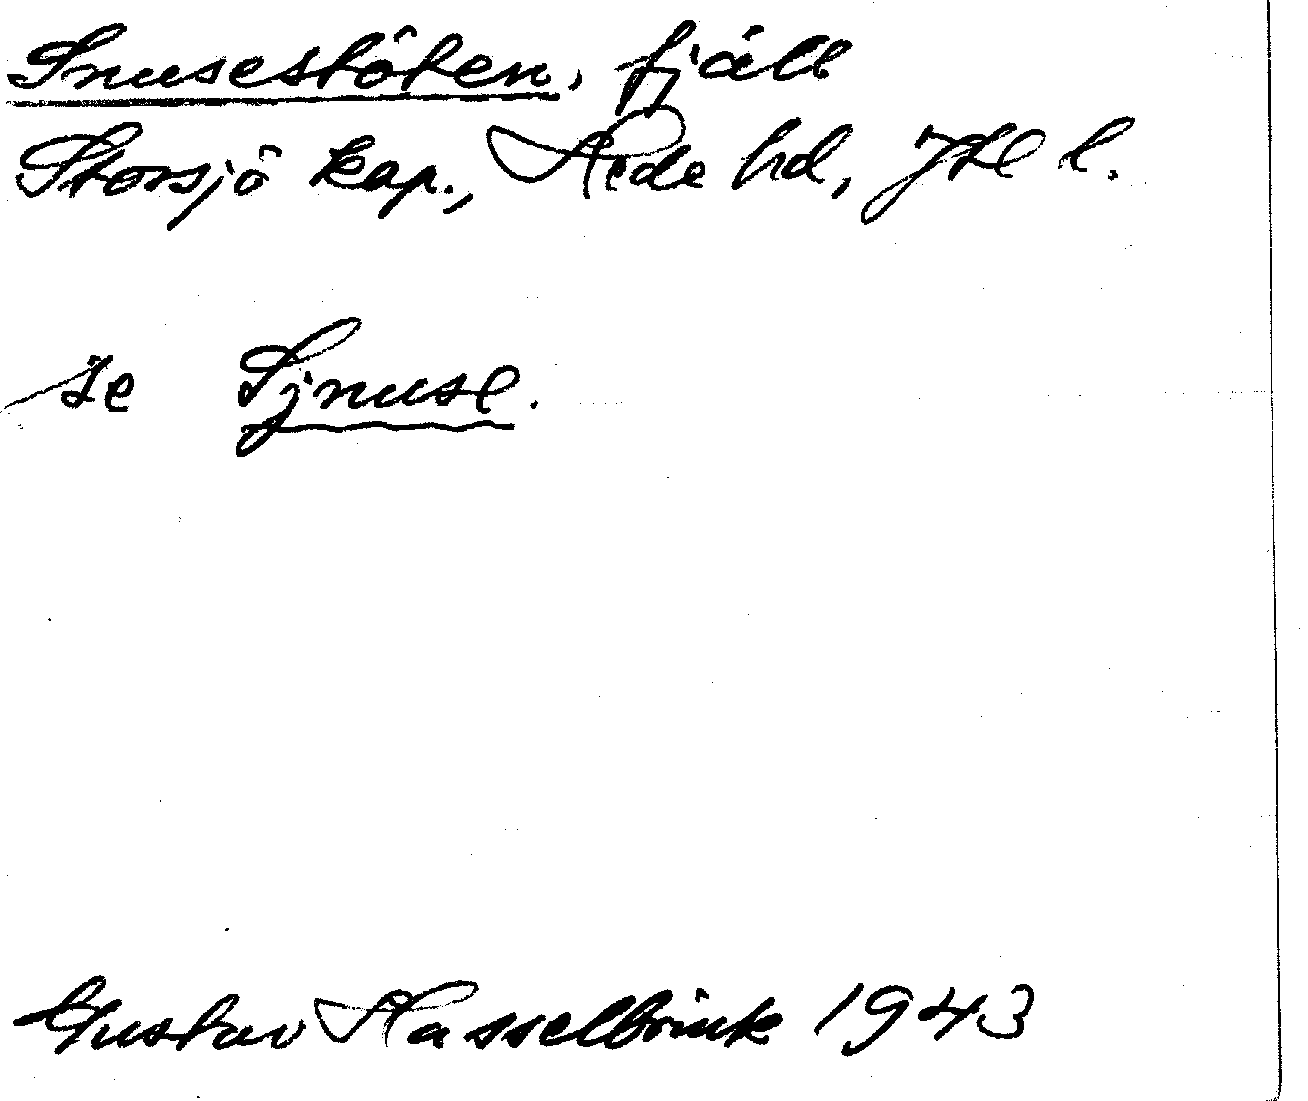 Snusestöten, fjäll
Storsjö kap., Hede hd, Jtl l.
se Sjnuse.
Gustav Hasselbrink 1943